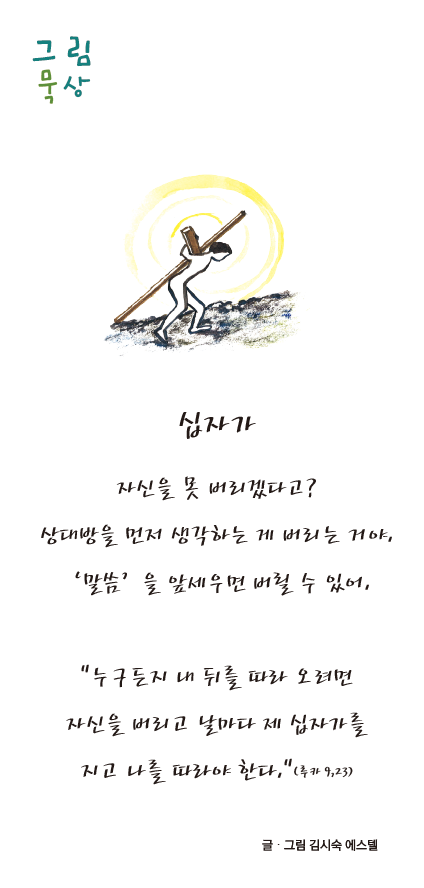 그림
묵상
십자가
자신을 못 버리겠다고?
상대방을 먼저 생각하는 게 버리는 거야.
'말씀' 을 앞세우면 버릴 수 있어.
"누구든지 내 뒤를 따라 오려면
자신을 버리고 날마다 제 십자가를
지고 나를 따라야 한다."(루카 9,23)
글 · 그림 김시숙 에스텔